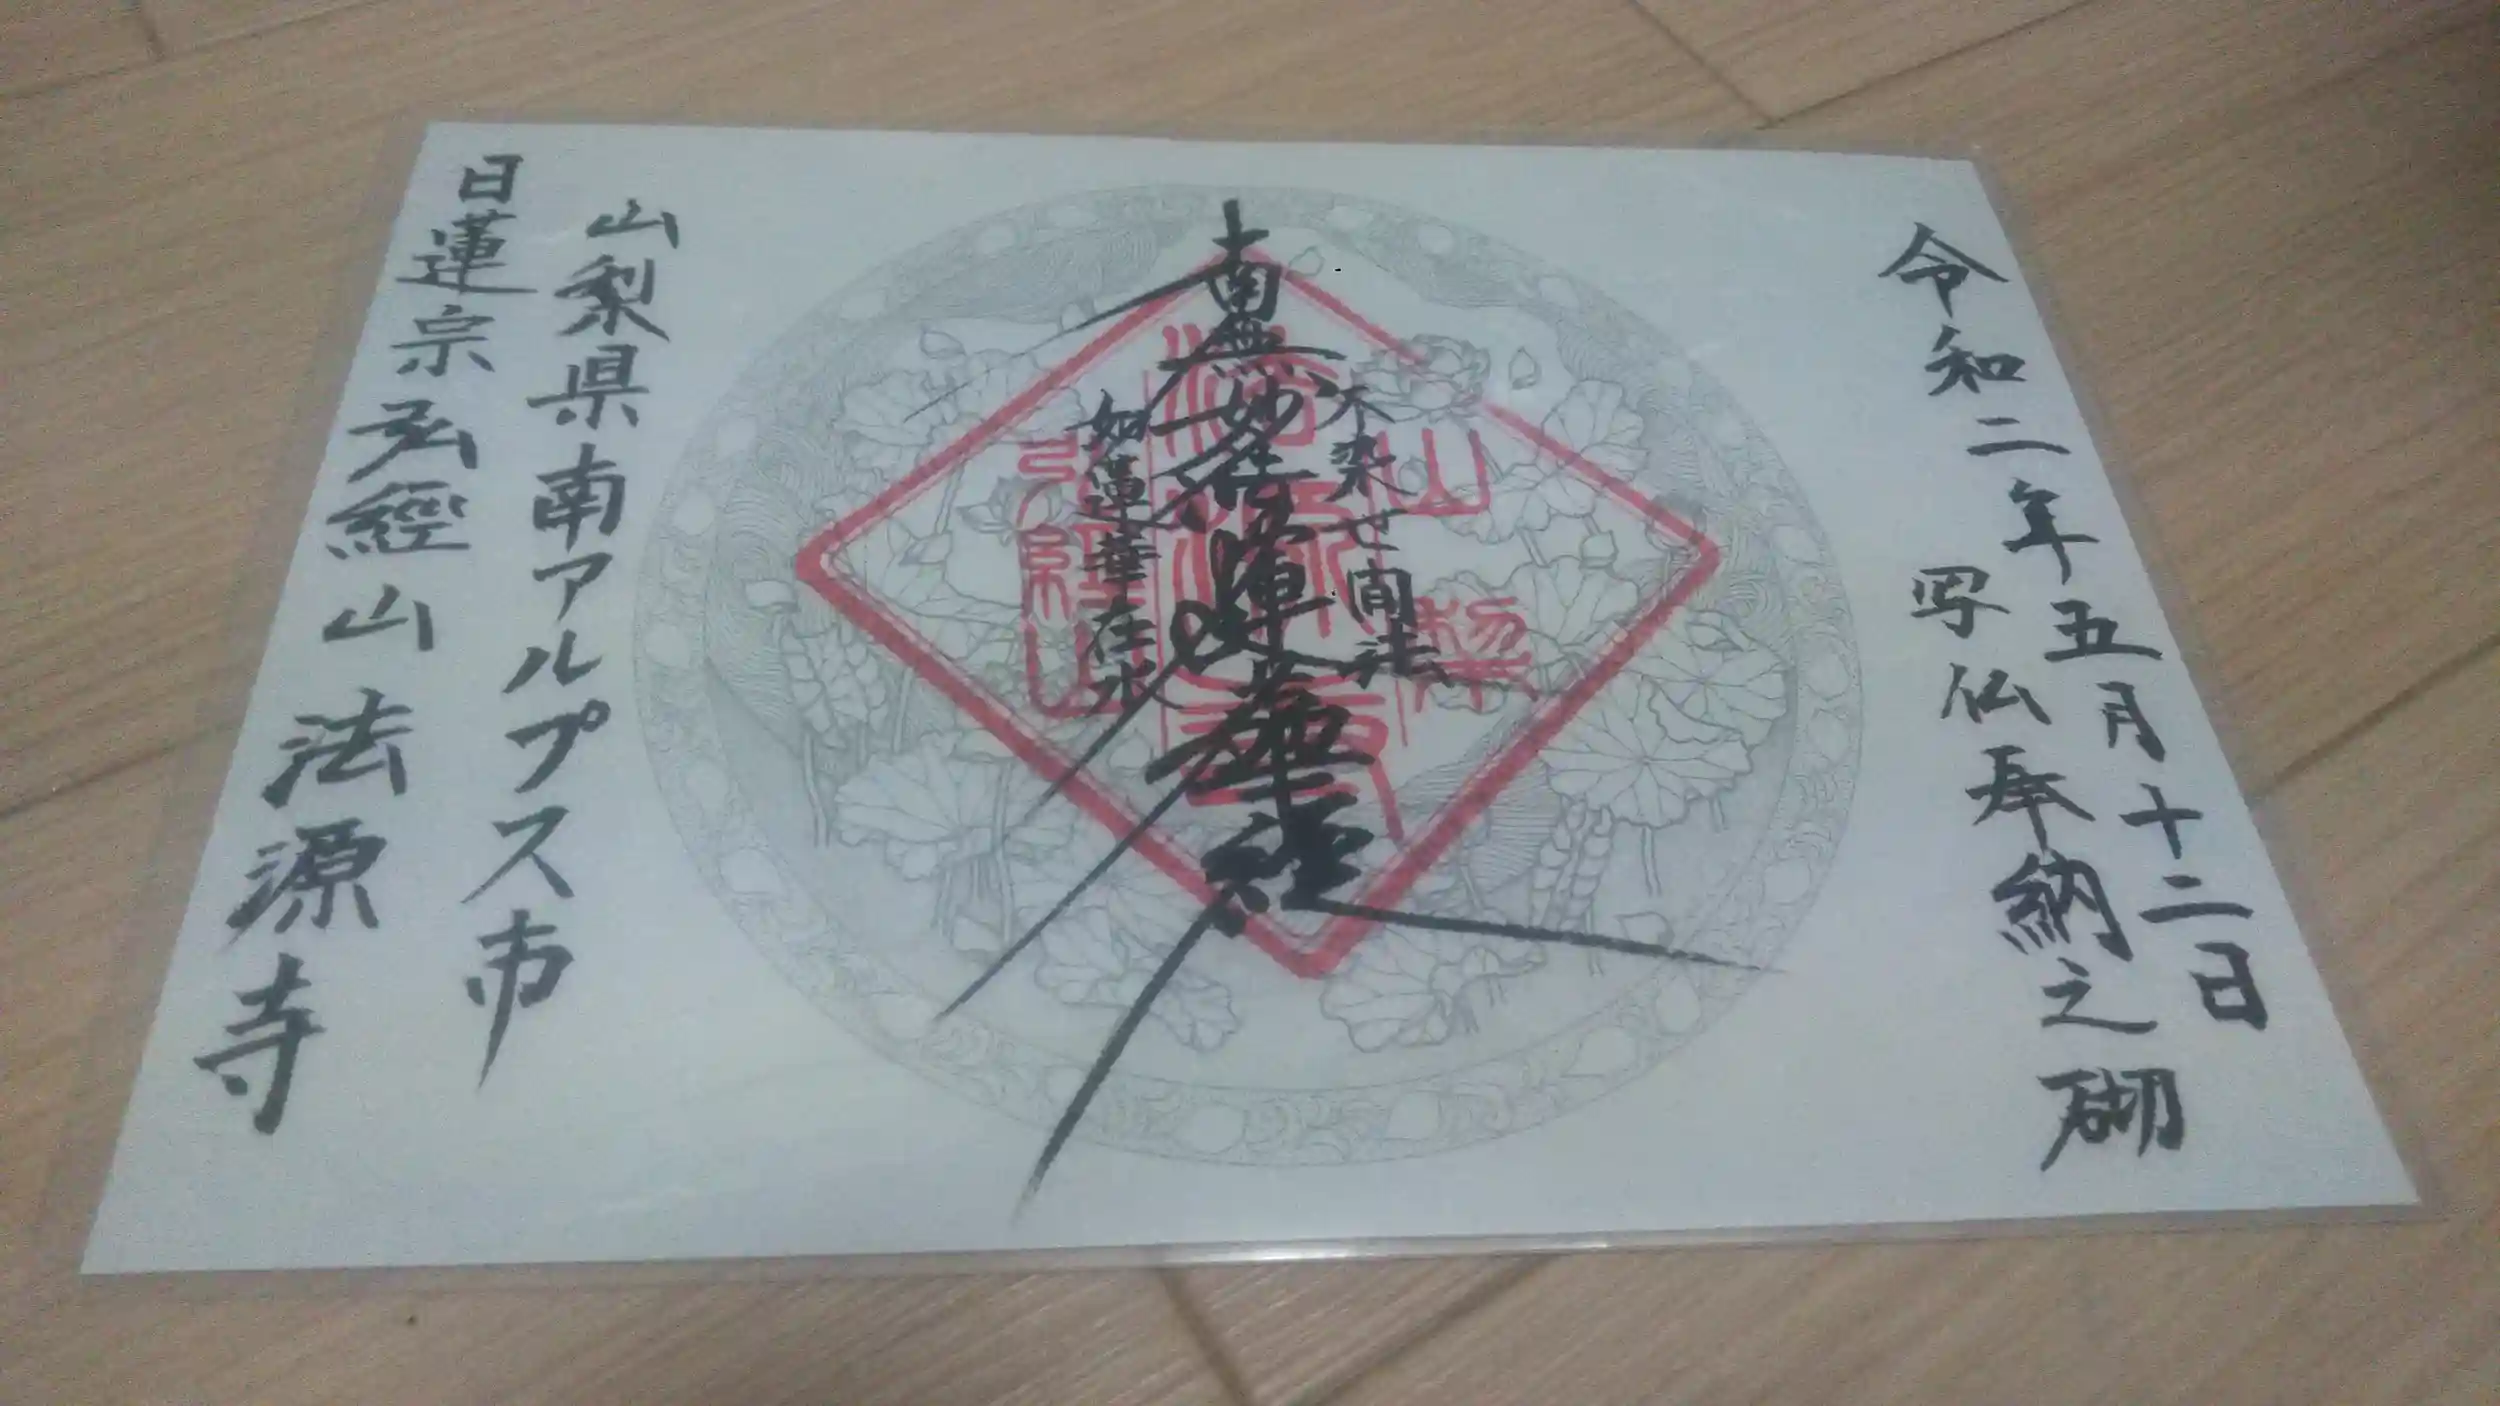 令和二年五月十二日
写仏奉納之砌
不染世間法
南無妙法蓮華経
如蓮華在水
山梨
法源寺
弘経山
山梨県南アルプス市
日蓮宗弘經山法源寺